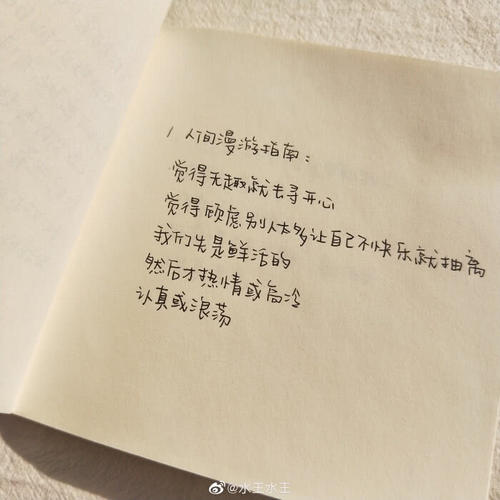 / 人间漫游指南：
觉得无趣就去寻开心
觉得顾虑别人太多让自己不快乐就抽离
我们先是鲜活的
然后才热情或高冷
认真或浪荡
@水王水王